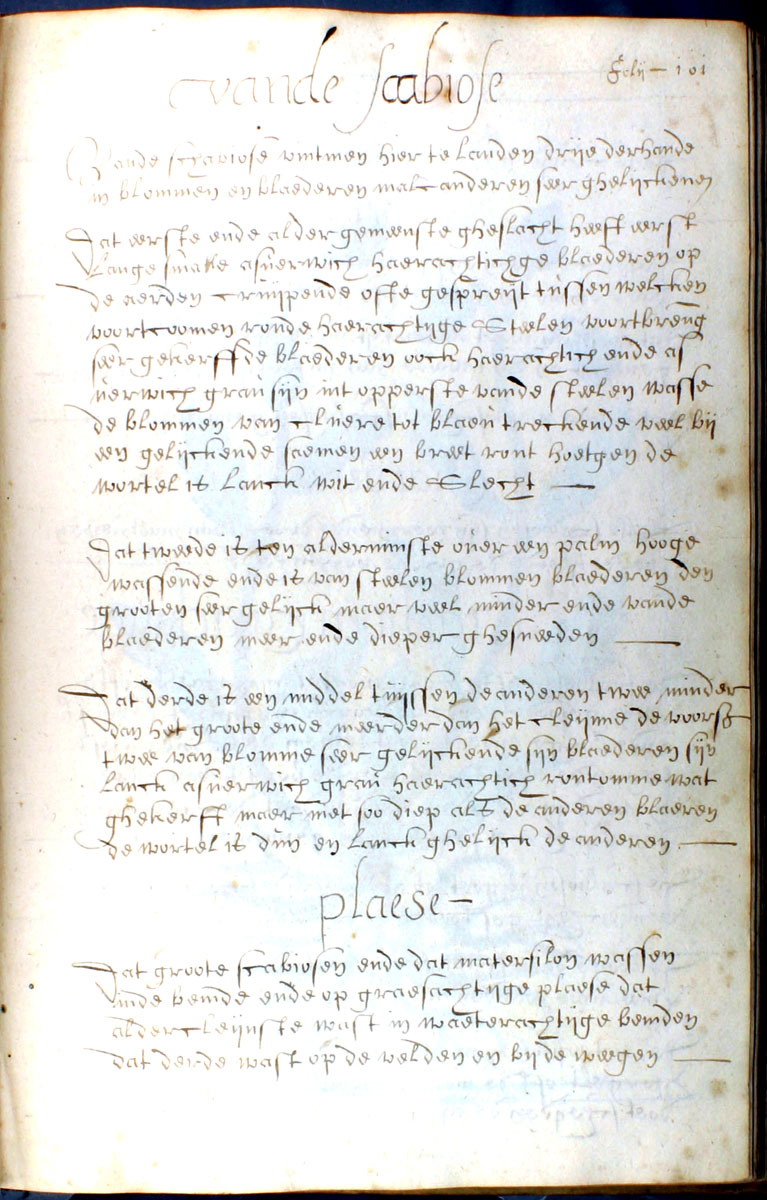 vande scabiose
folij - 101
Vande schabiose vintmen hier te landen drije derhande
in blommen en blaederen malcanderen seer ghelijckenen
Dat eerste ende aldergemeenste gheslacht heeft eerst
lange smalle asverwich haerachtichge blaederen op
de aerden cruijpende ofte gespreijt tussen welcken
voortcoomen ronde haerachtijge Steelen voortbreng
seer gekerffde blaederen oock haerachtich ende as
verwich grau sijn int opperste vande steelen wasse
de blommen van cluere tot blaeu treckende veel bij
een gelijckende saemen een breet ront hoetgen de
wortel is lanck wit ende Slecht —
Dat tweede is ten alderminste over een palm hooge
wassende ende is van steelen blommen blaederen den
grooten seer gelijck maer veel minder ende vande
blaederen meer ende dieper ghesneeden —
Dat derde is een middel tuijssen de anderen twee minder
dan het groote ende meerder dan het cleijnne de voors
twee van blomme seer gelijckende sijn blaederen sijn
lanck asverwich grau haerachtich rontomme wat
ghekerft maer niet soo diep als de anderen blaeren
de wortel is dun en lanck ghelijck de anderen —
plaese -
Dat groote scabiosen ende dat matersilon wassen
inde bemde ende op graesachtijge plaese dat
aldercleijnste wast in waeterachtijge bemden
dat derde wast op de velden en bij de weegen —